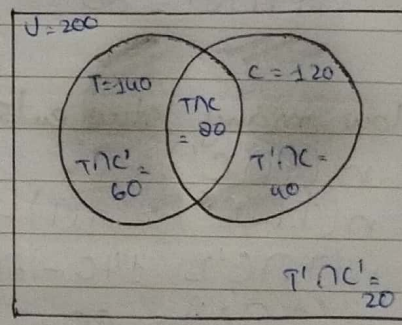 U=200
T=140
C=120
T∩C
= 80
T∩C'=
60
T'∩C=
40
T'∩C'=
20